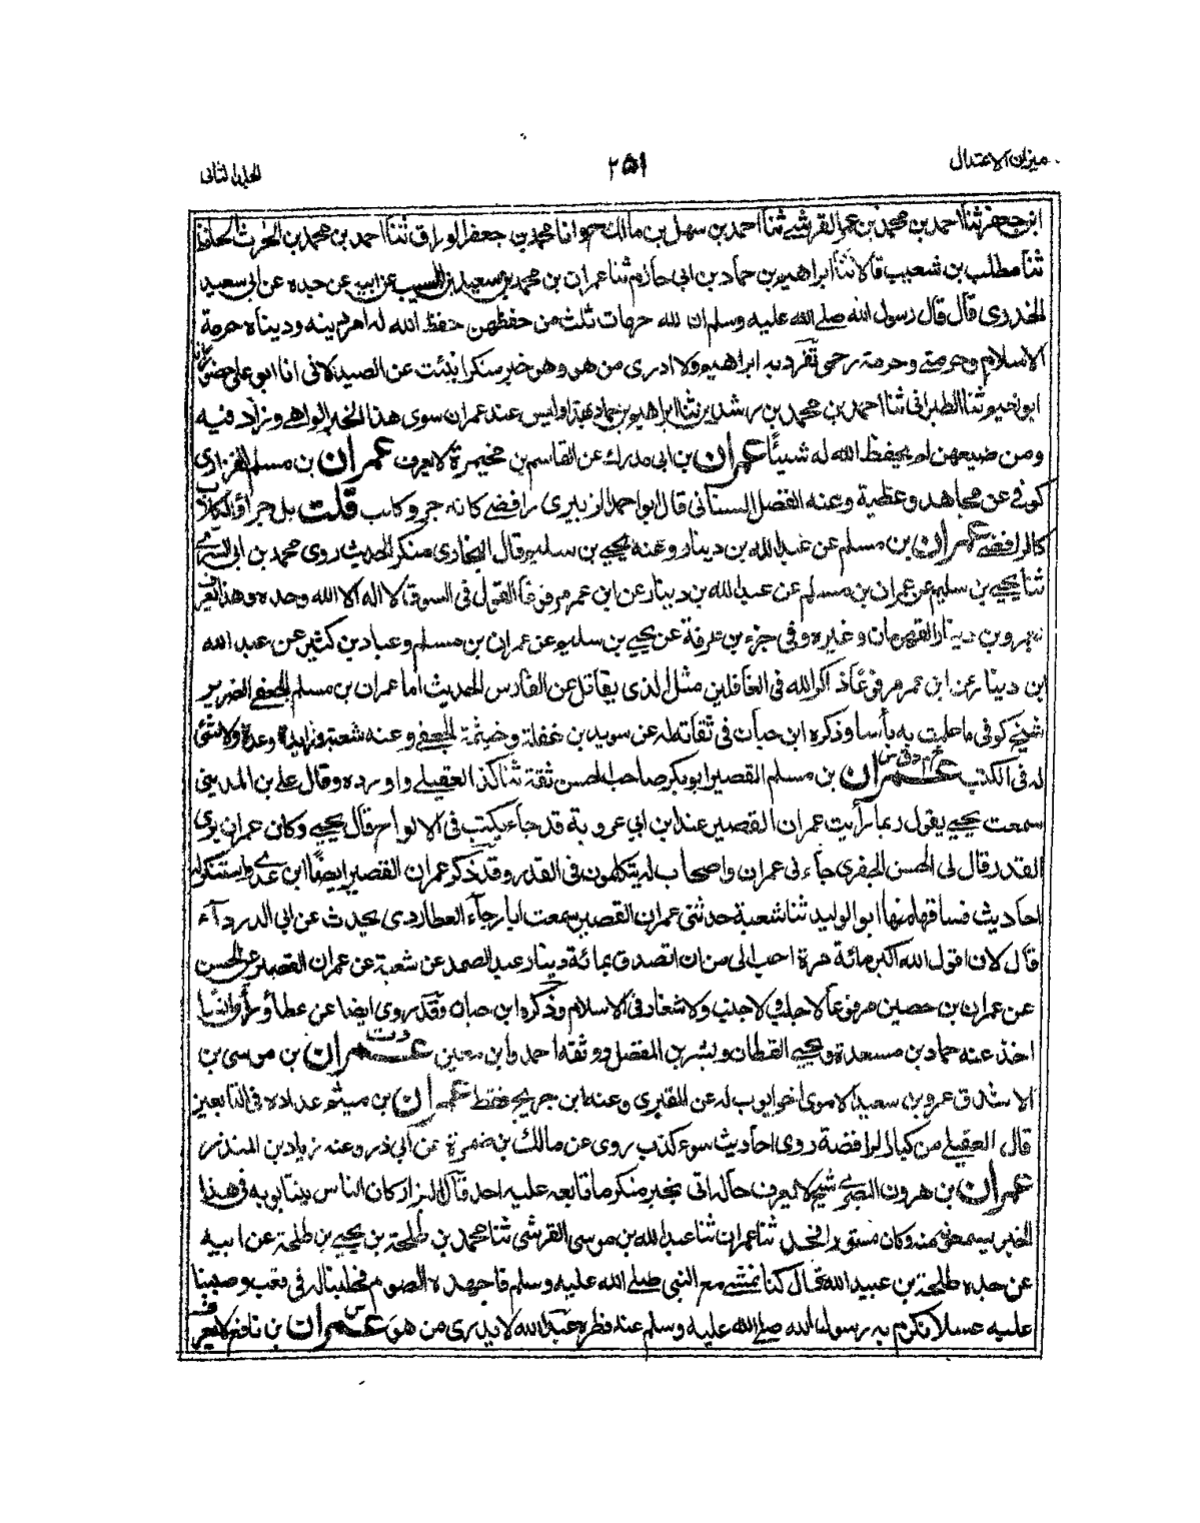 ميزان الاعتدال
٢٥١
الجلد الثاني
ابن جعفر ثنا احمد بن محمد بن عمر القرشي ثنا احمد بن سهل بن مالك ح وانا محمد بن جعفر الوراق ثنا احمد بن محمد بن الحرث الحافظ
ثنا مطلب بن شعيب قالا ثنا ابراهيم بن حماد بن ابى حازم ثنا عمران بن محمد بن سعيد بن المسيب عن ابيه عن جده عن ابى سعيد
الخدرى قال قال رسول الله صلے الله عليه وسلم ان لله حرمات ثلث من حفظهن حفظ الله له امر دينه ودنياه حرمة
الاسلام وحرمتے وحرمة رحمى تفرد به ابراهيم ولا ادرى من هو وهو خبر منكر انبئت عن الصيدلانى انا ابو على حضورا انا
ابو نعيم ثنا الطبرانى ثنا احمد بن محمد بن رشدين ثنا ابراهيم بن حماد بهذا وليس عند عمران سوى هذا الخبر الواهے وزاد فيه
ومن ضيعهن لم يحفظ الله له شيئًا عمران بن ابى مدرك عن القاسم بن مخيمرة لا يعرف عمران بن مسلم الفزارى
كوفى عن مجاهد وعطية وعنه الفضل السينانى قال ابو احمد الزبيرى رافضے كانه جرو كلب قلت بل خرأ الكلاب
كالرافضے عمران بن مسلم عن عبد الله بن دينار وعنه يحيے بن سليم قال البخارى منكر الحديث روى محمد بن ابى السرے
ثنا يحيے بن سليم عن عمران بن مسلم عن عبد الله بن دينار عن ابن عمر مرفوعًا القول فى السوق لا اله الا الله وحده وهذا يعرف
بعمرو بن دينار القهرمان وغيره وفى جزء بن عرفة عن يحيے بن سليم عن عمران بن مسلم وعباد بن كثير عن عبد الله
ابن دينار عن ابن عمر مرفوعًا ذاكر الله فى الغافلين مثل الذى يقاتل عن الفارين الحديث اما عمران بن مسلم الجعفے الضرير
شيخ كوفى ما علمت به بأسا وذكره ابن حبان فى ثقاته له عن سويد بن غفلة وخيثمة الجعفے وعنه شعبة وزايدة وعدة ولا شئ
له فى الكتب عمران خ م د ق س بن مسلم القصير ابو بكر صاحب الحسن ثقة ثنا كذا العقيلے واورده وقال علے بن المدينى
سمعت يحيے يقول ربما رأيت عمران القصير عند ابن ابى عروبة قد جاء يكتب فى الالواح قال يحيے وكان عمران يرى
القدر قال لى الحسن الجفرى جاءنى عمران واصحاب له يتكلمون فى القدر وقد ذكر عمران القصير ايضًا ابن عدے واستنكر له
احاديث فساقها منها ابو الوليد ثنا شعبة حدثنى عمران القصير سمعت ابا رجاء العطاردى يحدث عن ابى الدرداء
قال لان اقول الله اكبر مائة مرة احب الى من ان اتصدق بمائة دينار عبد الصمد عن شعبة عن عمران القصير عن الحسن
عن عمران بن حصين مرفوعًا لا جلب ولا جنب ولا شغار فى الاسلام وذكره ابن حبان وقد روى ايضا عن عطاء و رأى انسا
اخذ عنه حماد بن مسعدة ويحيے القطان وبشر بن المفضل ووثقه احمد وابن معين عمران د ت بن موسى بن
الاشدق عمرو بن سعيد الاموى اخو ايوب له عن المقبرى وعنه ابن جريج فقط عمران بن ميثم عداده فى التابعين
قال العقيلے من كبار الرافضة روى احاديث سوء كذب روى عن مالك بن ضمرة عن ابى ذر وعنه زياد بن المنذر
عمران بن هرون البصرے شيخ لا يعرف حاله اتى بخبر منكر ما تابعه عليه احد قال البزار كان الناس ينتابونه فى هذا
الخبر يسمعونه منه وكان مستورا انخل ثنا عمران ثنا عبد الله بن موسى القرشى ثنا محمد بن طلحة بن يحيے بن طلحة عن ابيه
عن جده طلحة بن عبيد الله قال كنا نمشے مع النبى صلے الله عليه وسلم فاجهده الصوم فحلبنا له فى قعب وصببنا
عليه عسلا نكرم به رسول الله صلے الله عليه وسلم عند فطره عبد الله لا يدرى من هو عمران س بن نافع لا يعرف